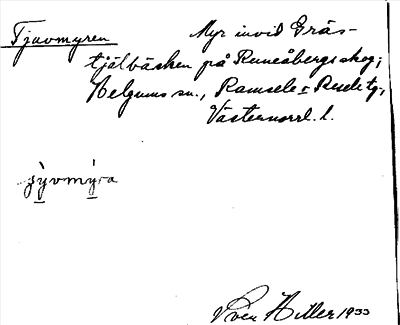 Tjuvmyren Myr invid Gräs-
tjälbäcken på Runeåbergs skog,
Helgums sn., Ramsele o Resele tg,
Västernorrl. l.
Sven Hitler 1933